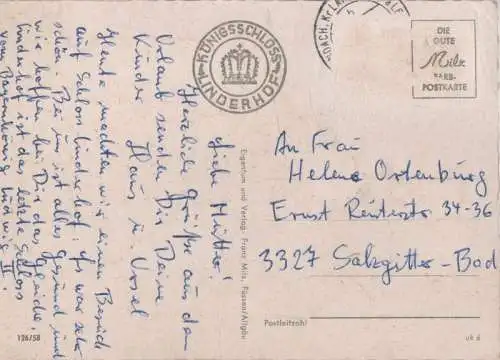 Liebe Mutter!
Herzliche Grüße aus dem
Urlaub senden Dir Deine
Kinder Hans u. Ursel
Heute machten wir einen Besuch
auf Schloss Linderhof. Es war sehr
schön. Bei uns ist alles gesund und
wir hoffen bei Dir das Gleiche.
Linderhof ist das letzte Schloss
vom Bayernkönig Ludwig II.
126/58
KÖNIGSSCHLOSS
LINDERHOF
Eigentum und Verlag: Franz Milz, Füssen/Allgäu
DIE
GUTE
Milz
FARB-
POSTKARTE
An Frau
Helene Ortenburg
Ernst Reuterstr 34-36
3327 Salzgitter-Bad
Postleitzahl
uk d